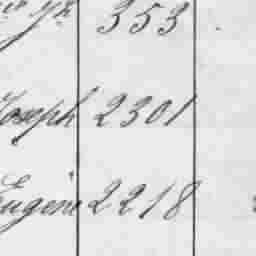 353
Joseph 2301
Eugène 2218